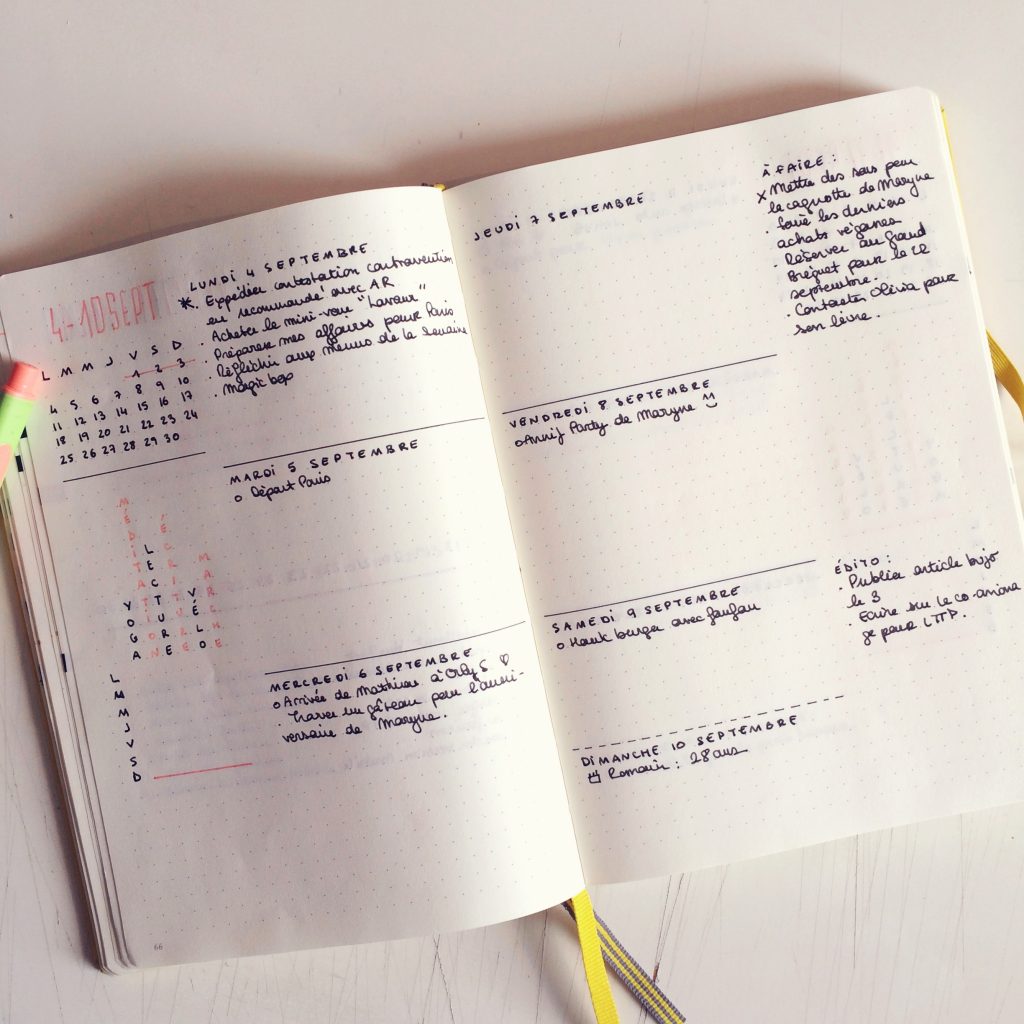 4-10 SEPT
L M M J V S D
1 2 3
4 5 6 7 8 9 10
11 12 13 14 15 16 17
18 19 20 21 22 23 24
25 26 27 28 29 30
MÉDITATION
YOGA
LECTURE
ÉCRITURE
VÉLO
MARCHE
L
M
M
J
V
S
D
66
LUNDI 4 SEPTEMBRE
. Expédier contestation contravention
en recommandé avec AR
. Acheter le mini-four "Lavaur"
. Préparer mes affaires pour Paris
. Réfléchir aux menus de la semaine
. Magic bop
MARDI 5 SEPTEMBRE
o Départ Paris
MERCREDI 6 SEPTEMBRE
o Arrivée de Mathieu à Orly S ♡
. Trouver un gâteau pour l'anni-
versaire de Maryne.
JEUDI 7 SEPTEMBRE
VENDREDI 8 SEPTEMBRE
o Annif Party de Maryne
SAMEDI 9 SEPTEMBRE
o Hank burger avec
DIMANCHE 10 SEPTEMBRE
Romain : 28 ans
À FAIRE :
x Mettre des sous pour
la cagnotte de Maryne
. faire les derniers
achats véganes
. Réserver au Grand
Bréguet pour le 12
septembre.
. Contacter Olivia pour
son livre.
ÉDITO :
. Publier article bujo
le 3
. Ecrire sur le co-anima
ge pour LTTP.